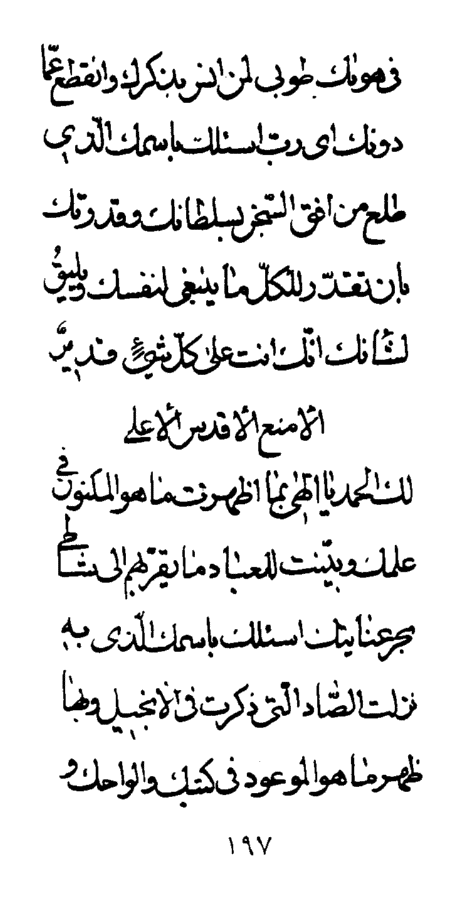 فی هوئک طوبی لمن انس بذکرک وانقطع عمّا
دونک ای ربّ اسئلک باسمک الّذی
طلع من افق السّجن بسلطانک وقدرتک
بان تقدّر للکلّ ما ینبغی لنفسک ویلیقُ
لشأنک انّک انت علی کلّ شیءٍ قدیرٌ
الامنع الاقدس الاعلی
لک الحمد یا الهی بما اظهرت ما هو المکنون فی
علمک وبیّنت للعباد ما یقرّبهم الی شاطئ
بحر عنایتک اسئلک باسمک الّذی به
نزلت الصّاد الّتی ذکرت فی الانجیل وبها
ظهر ما هو الموعود فی کتبک والواحک و
١٩٧